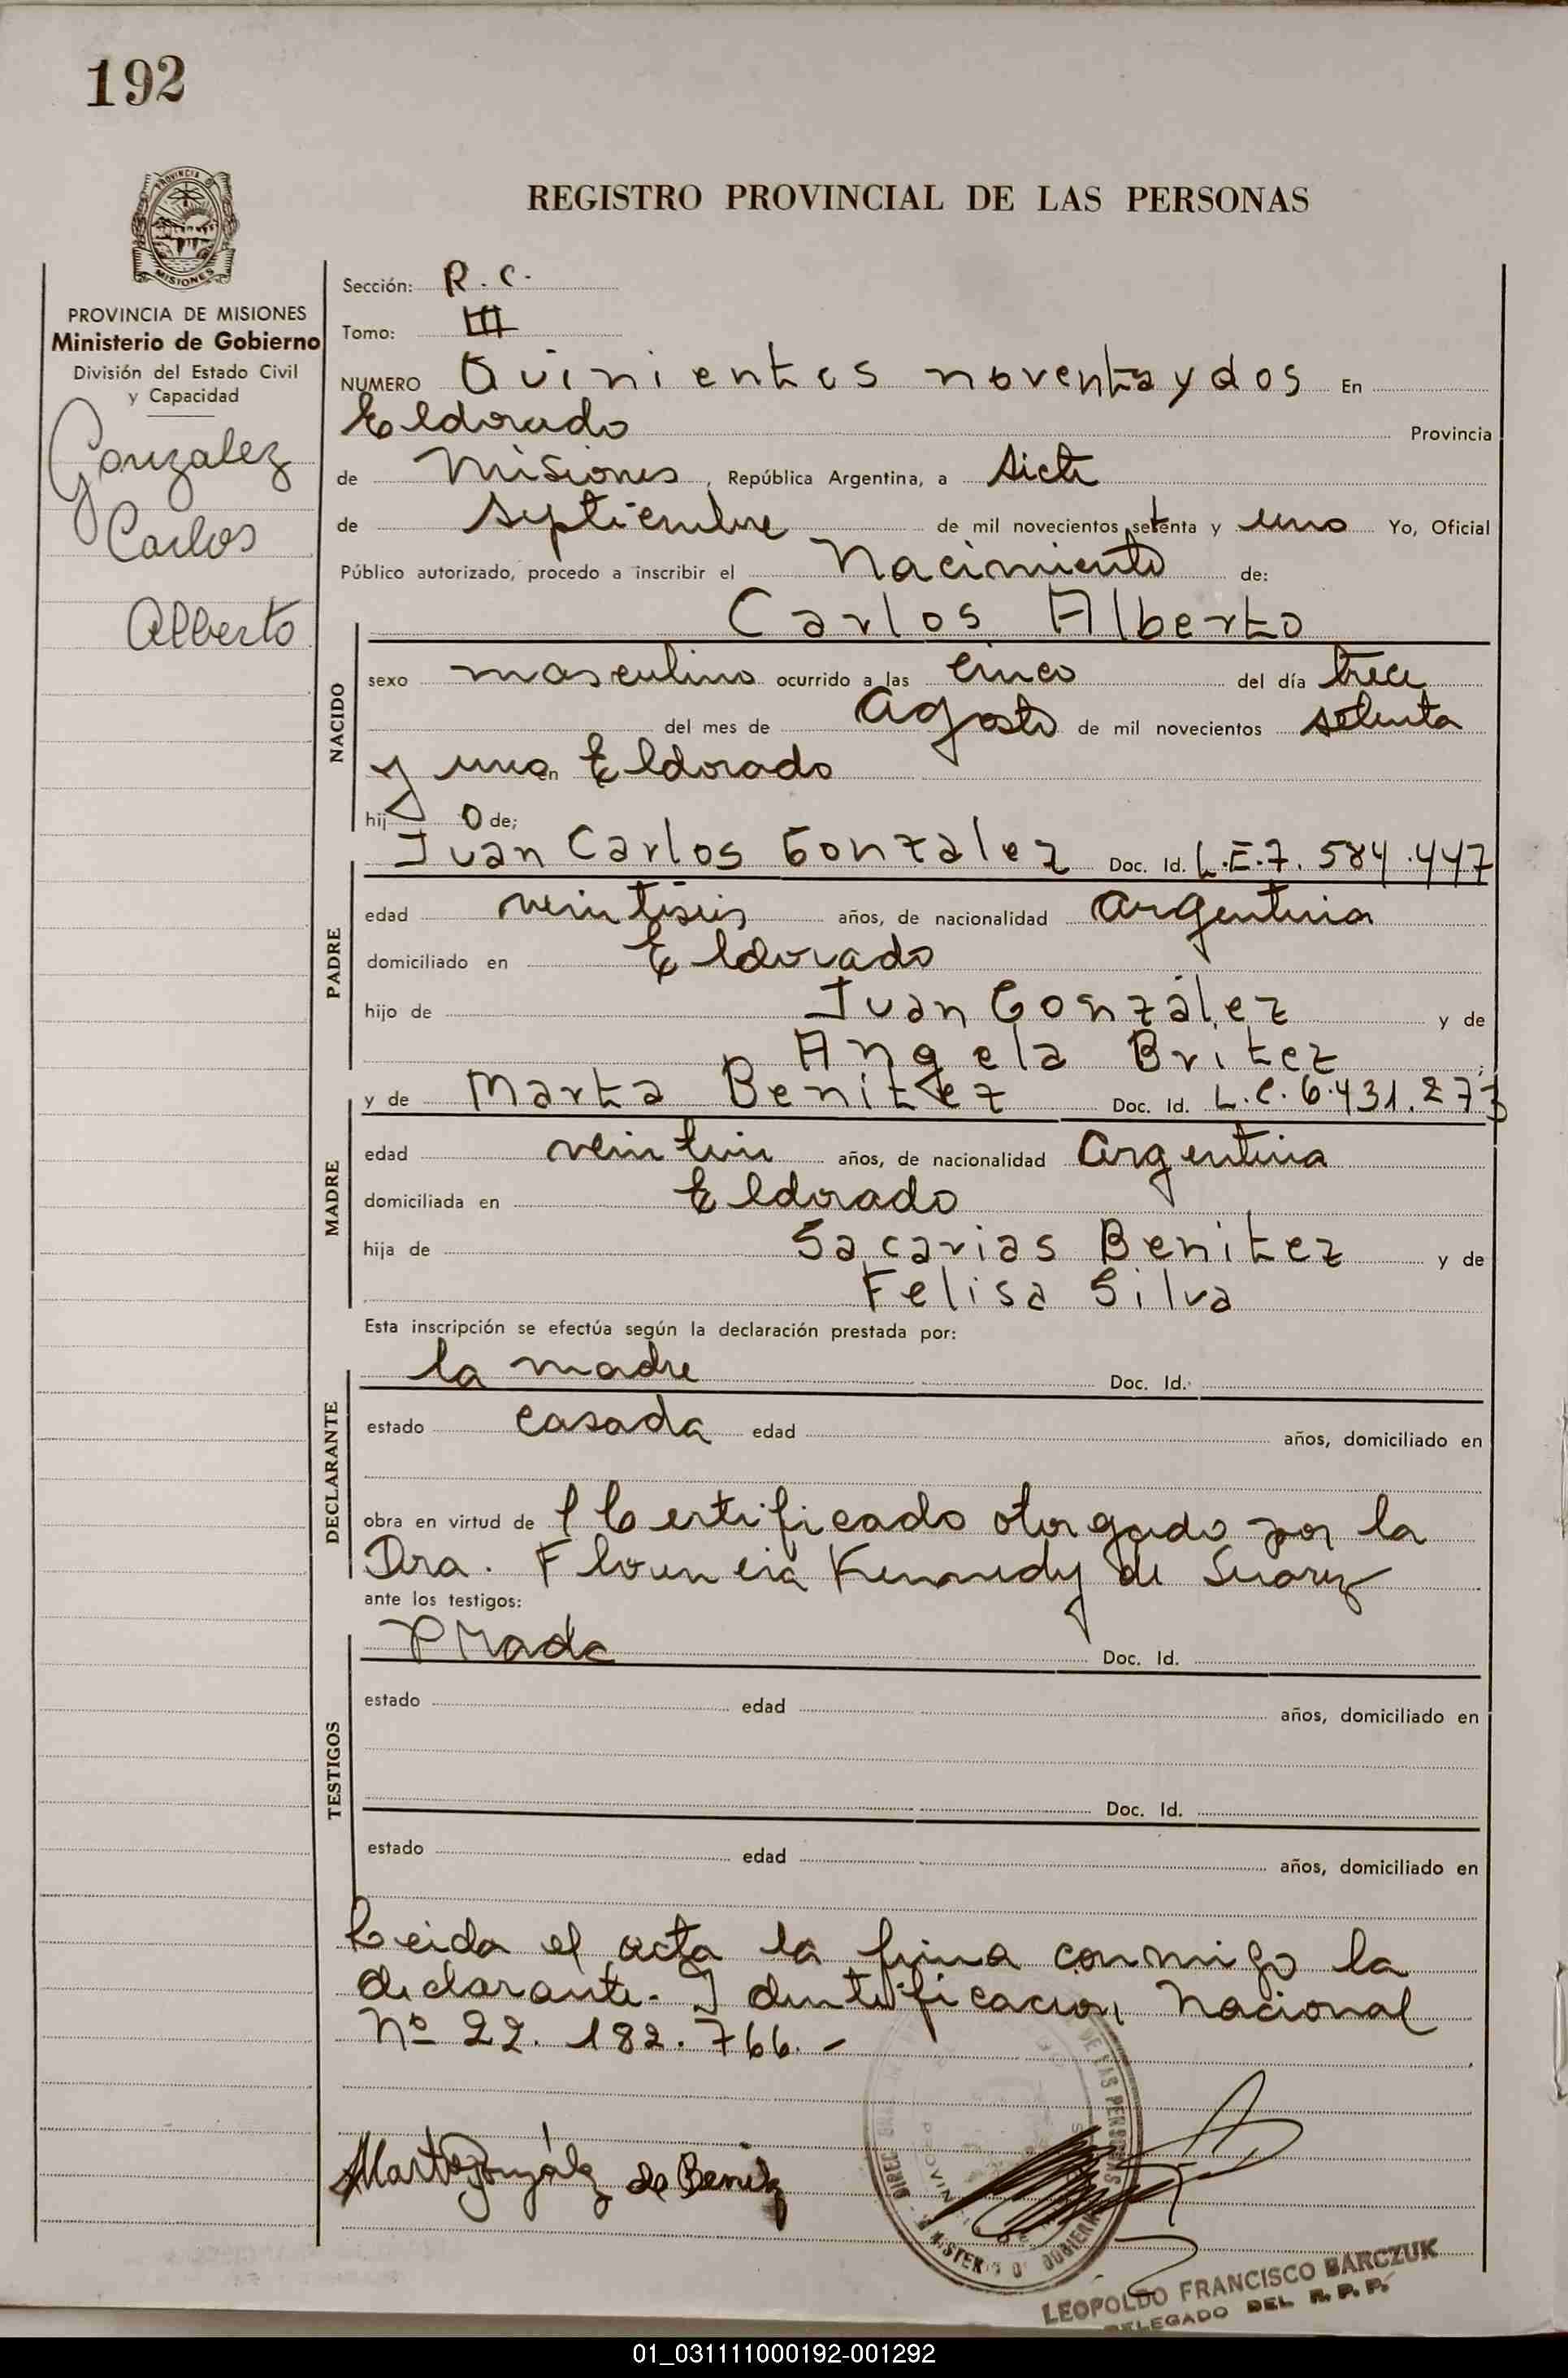 192
REGISTRO PROVINCIAL DE LAS PERSONAS
PROVINCIA DE MISIONES
Ministerio de Gobierno
División del Estado Civil
y Capacidad
Gonzalez
Carlos
Alberto
Sección: R. C.
Tomo: III
NUMERO Quinientos noventa y dos En
Eldorado Provincia
de Misiones, República Argentina, a siete
de septiembre de mil novecientos setenta y uno Yo, Oficial
Público autorizado, procedo a inscribir el Nacimiento de:
Carlos Alberto
NACIDO
sexo masculino ocurrido a las cinco del día trece
del mes de Agosto de mil novecientos setenta
y uno en Eldorado
hij o de;
Juan Carlos Gonzalez Doc. Id. L.E.7.584.447
PADRE
edad veintiseis años, de nacionalidad argentina
domiciliado en Eldorado
hijo de Juan González y de
Angela Britez
y de Marta Benitez Doc. Id. L.C. 6.431.273
MADRE
edad años, de nacionalidad Argentina
domiciliada en Eldorado
hija de Sacarias Benitez y de
Felisa Silva
Esta inscripción se efectúa según la declaración prestada por:
la madre Doc. Id.
DECLARANTE
estado casada edad años, domiciliado en
obra en virtud de Certificado otorgado por la
Dra. Florencia Kennedy de Suarez
ante los testigos:
Doc. Id.
TESTIGOS
estado edad años, domiciliado en
Doc. Id.
estado edad años, domiciliado en
Leida el acta la firma conmigo la
declarante. Identificacion Nacional
Nº 22.182.766.-
Marta González de Benitez
LEOPOLDO FRANCISCO BARCZUK
DELEGADO DEL R. P. P.
01_031111000192-001292